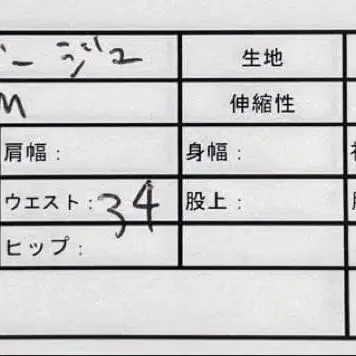 ージュ 生地
M 伸縮性
肩幅： 身幅：
ウエスト：34 股上：
ヒップ：